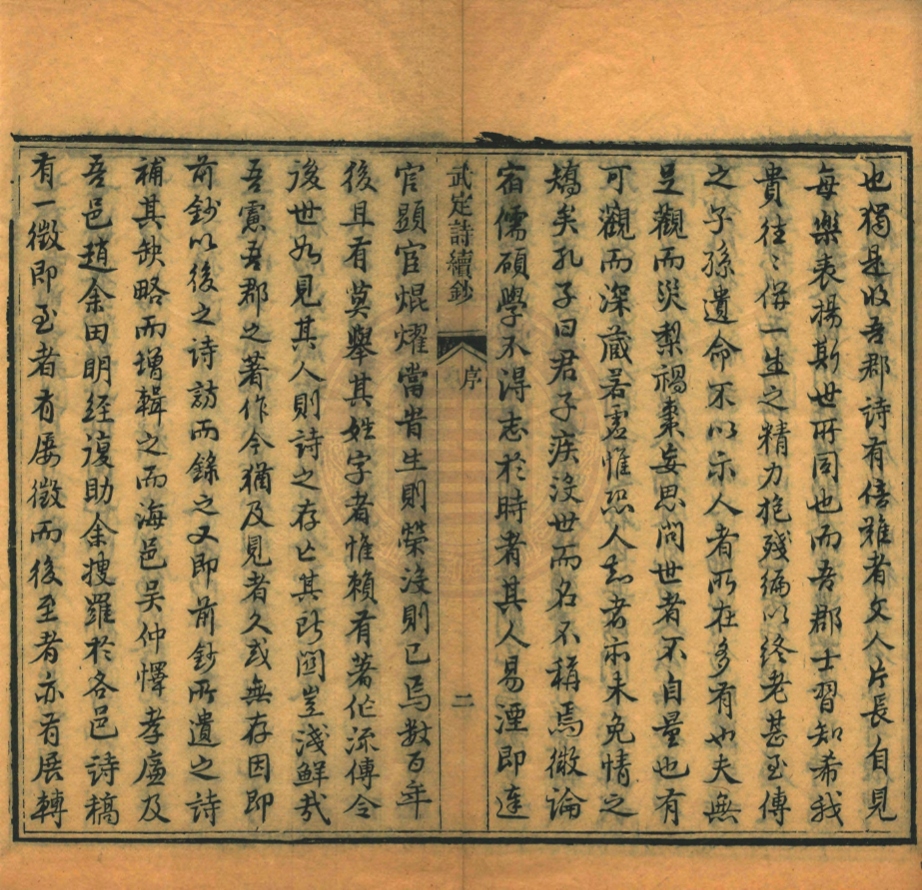 也獨是收吾郡詩有倍難者文人片長自見
每樂表揚斯世所同也而吾郡士習知希我
貴往〻併一生之精力抱殘編以終老甚至傳
之子孫遺命不以示人者所在多有也夫無
足觀而災梨禍棗妄思問世者不自量也有
可觀而深藏若虛惟恐人知者亦未免情之
矯矣孔子曰君子疾沒世而名不稱焉微論
宿儒碩學不得志於時者其人易湮即達
武定詩續鈔
序
二
官顯宦焜燿當時生則榮沒則已焉數百年
後且有莫舉其姓字者惟賴有著作流傳令
後世如見其人則詩之存亡其所關豈淺鮮哉
吾慮吾郡之著作今猶及見者久或無存因即
前鈔以後之詩訪而錄之又即前鈔所遺之詩
補其缺略而增輯之而海邑吳仲懌孝廉及
吾邑趙余田明經復助余搜羅於各邑詩稿
有一徵即至者有屢徵而後至者亦有展轉